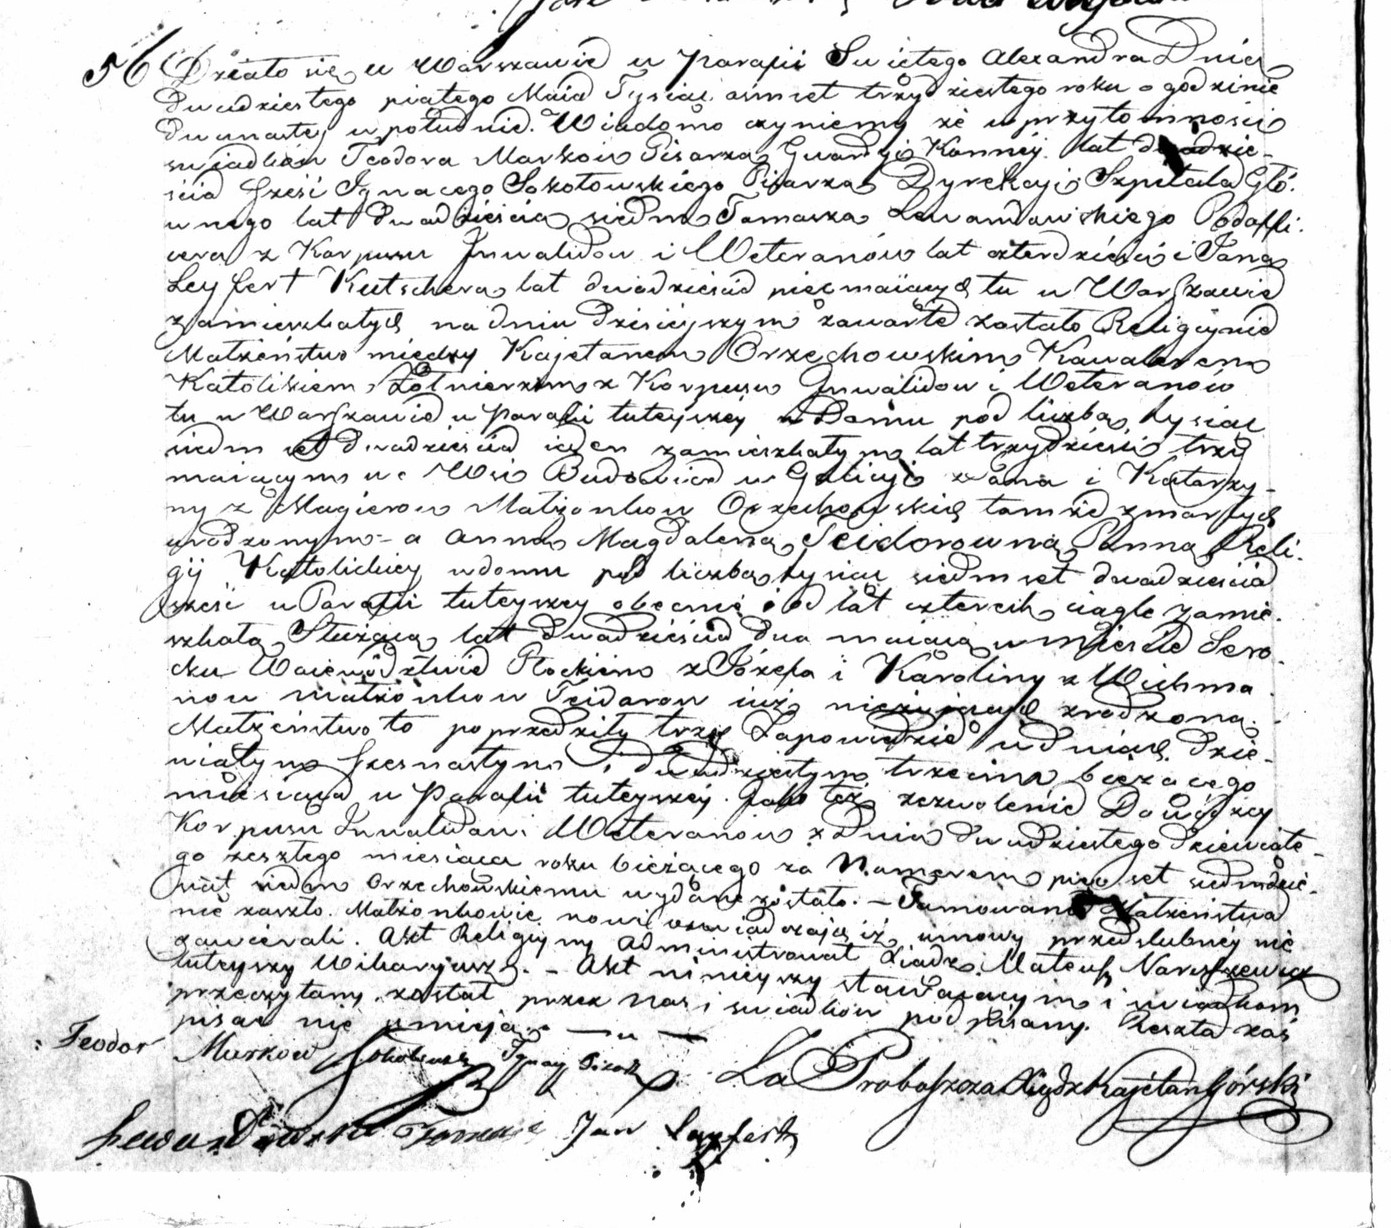 56 Działo się w Warszawie w Parafii Świętego Alexandra Dnia
dwudziestego piątego Maia Tysiąc ośmset trzydziestego roku o godzinie
dwunastey w południe. Wiadomo czyniemy że w przytomności
świadków Teodora Markow Pisarza Gwardyi Konney lat dwadzie-
ścia sześć Ignacego Sokołowskiego Pisarza Dyrekcyi Szpitala Głó-
wnego lat dwadzieścia siedm Tomasza Lewandowskiego Podoffi-
cera z Korpusu Inwalidow i Weteranów lat czterdzieści i Jana
Leyfert Kutschera lat dwadzieścia pięć maiących tu w Warszawie
zamieszkałych na dniu dzisieyszym zawarte zostało Religiynie
Małżeństwo między Kajetanem Orzechowskim Kawalerem
Katolikiem Żołnierzem z Korpusu Inwalidow i Weteranów
tu w Warszawie w Parafii tuteyszey w Domu pod liczbą tysiąc
siedm set dwadzieścia ieden zamieszkałym lat trzydzieści trzy
maiącym we Wsi w Galicyi z Jana i Katarzy-
ny z Magierow Małżonkow Orzechowskich tamże zmarłych
urodzonym - a Anną Magdaleną Teidorowną Panną Reli-
gij Katolickiey w domu pod liczbą tysiąc siedmset dwadzieścia
sześć w Parafii tuteyszey obecnie i od lat czterech ciągle zamie-
szkałą Służącą lat dwadzieścia dwa maiącą w Mieście Sero-
cku Woiewództwie Płockim z Józefa i Karoliny z Wichma
now Małżonkow Teidorow iuż nieżyiących zrodzoną.
Małżeństwo to poprzedziły trzy Zapowiedzie w dniach dzie-
wiątym szesnastym i dwudziestym trzecim bieżącego
miesiąca w Parafii tuteyszey. Jako też zezwolenie Dowódzcy
Korpusu Inwalidow i Weteranow z dnia dwudziestego dziewiąte-
go zeszłego miesiąca roku bieżącego za Numerem pięć set siedmdzie-
siąt siedm Orzechowskiemu wydane zostało. - Tamowanie Małżeństwa
nie zaszło. Małżonkowie nowi oswiadczaią iż umowy przedslubney nie
zawierali. Akt Religiyny Administrował Xiądz Mateusz Naruszewicz
tuteyszy Wikaryusz. - Akt ninieyszy stawaiącym i swiadkom
przeczytany został przez nas i swiadków podpisany. Reszta zaś
pisać nie umieją.
Teodor Markow Sokołowski Ignacy Pisarz Za Proboszcza Xiądz Kajetan Górski
Lewandowski Tomasz Jan Layfert